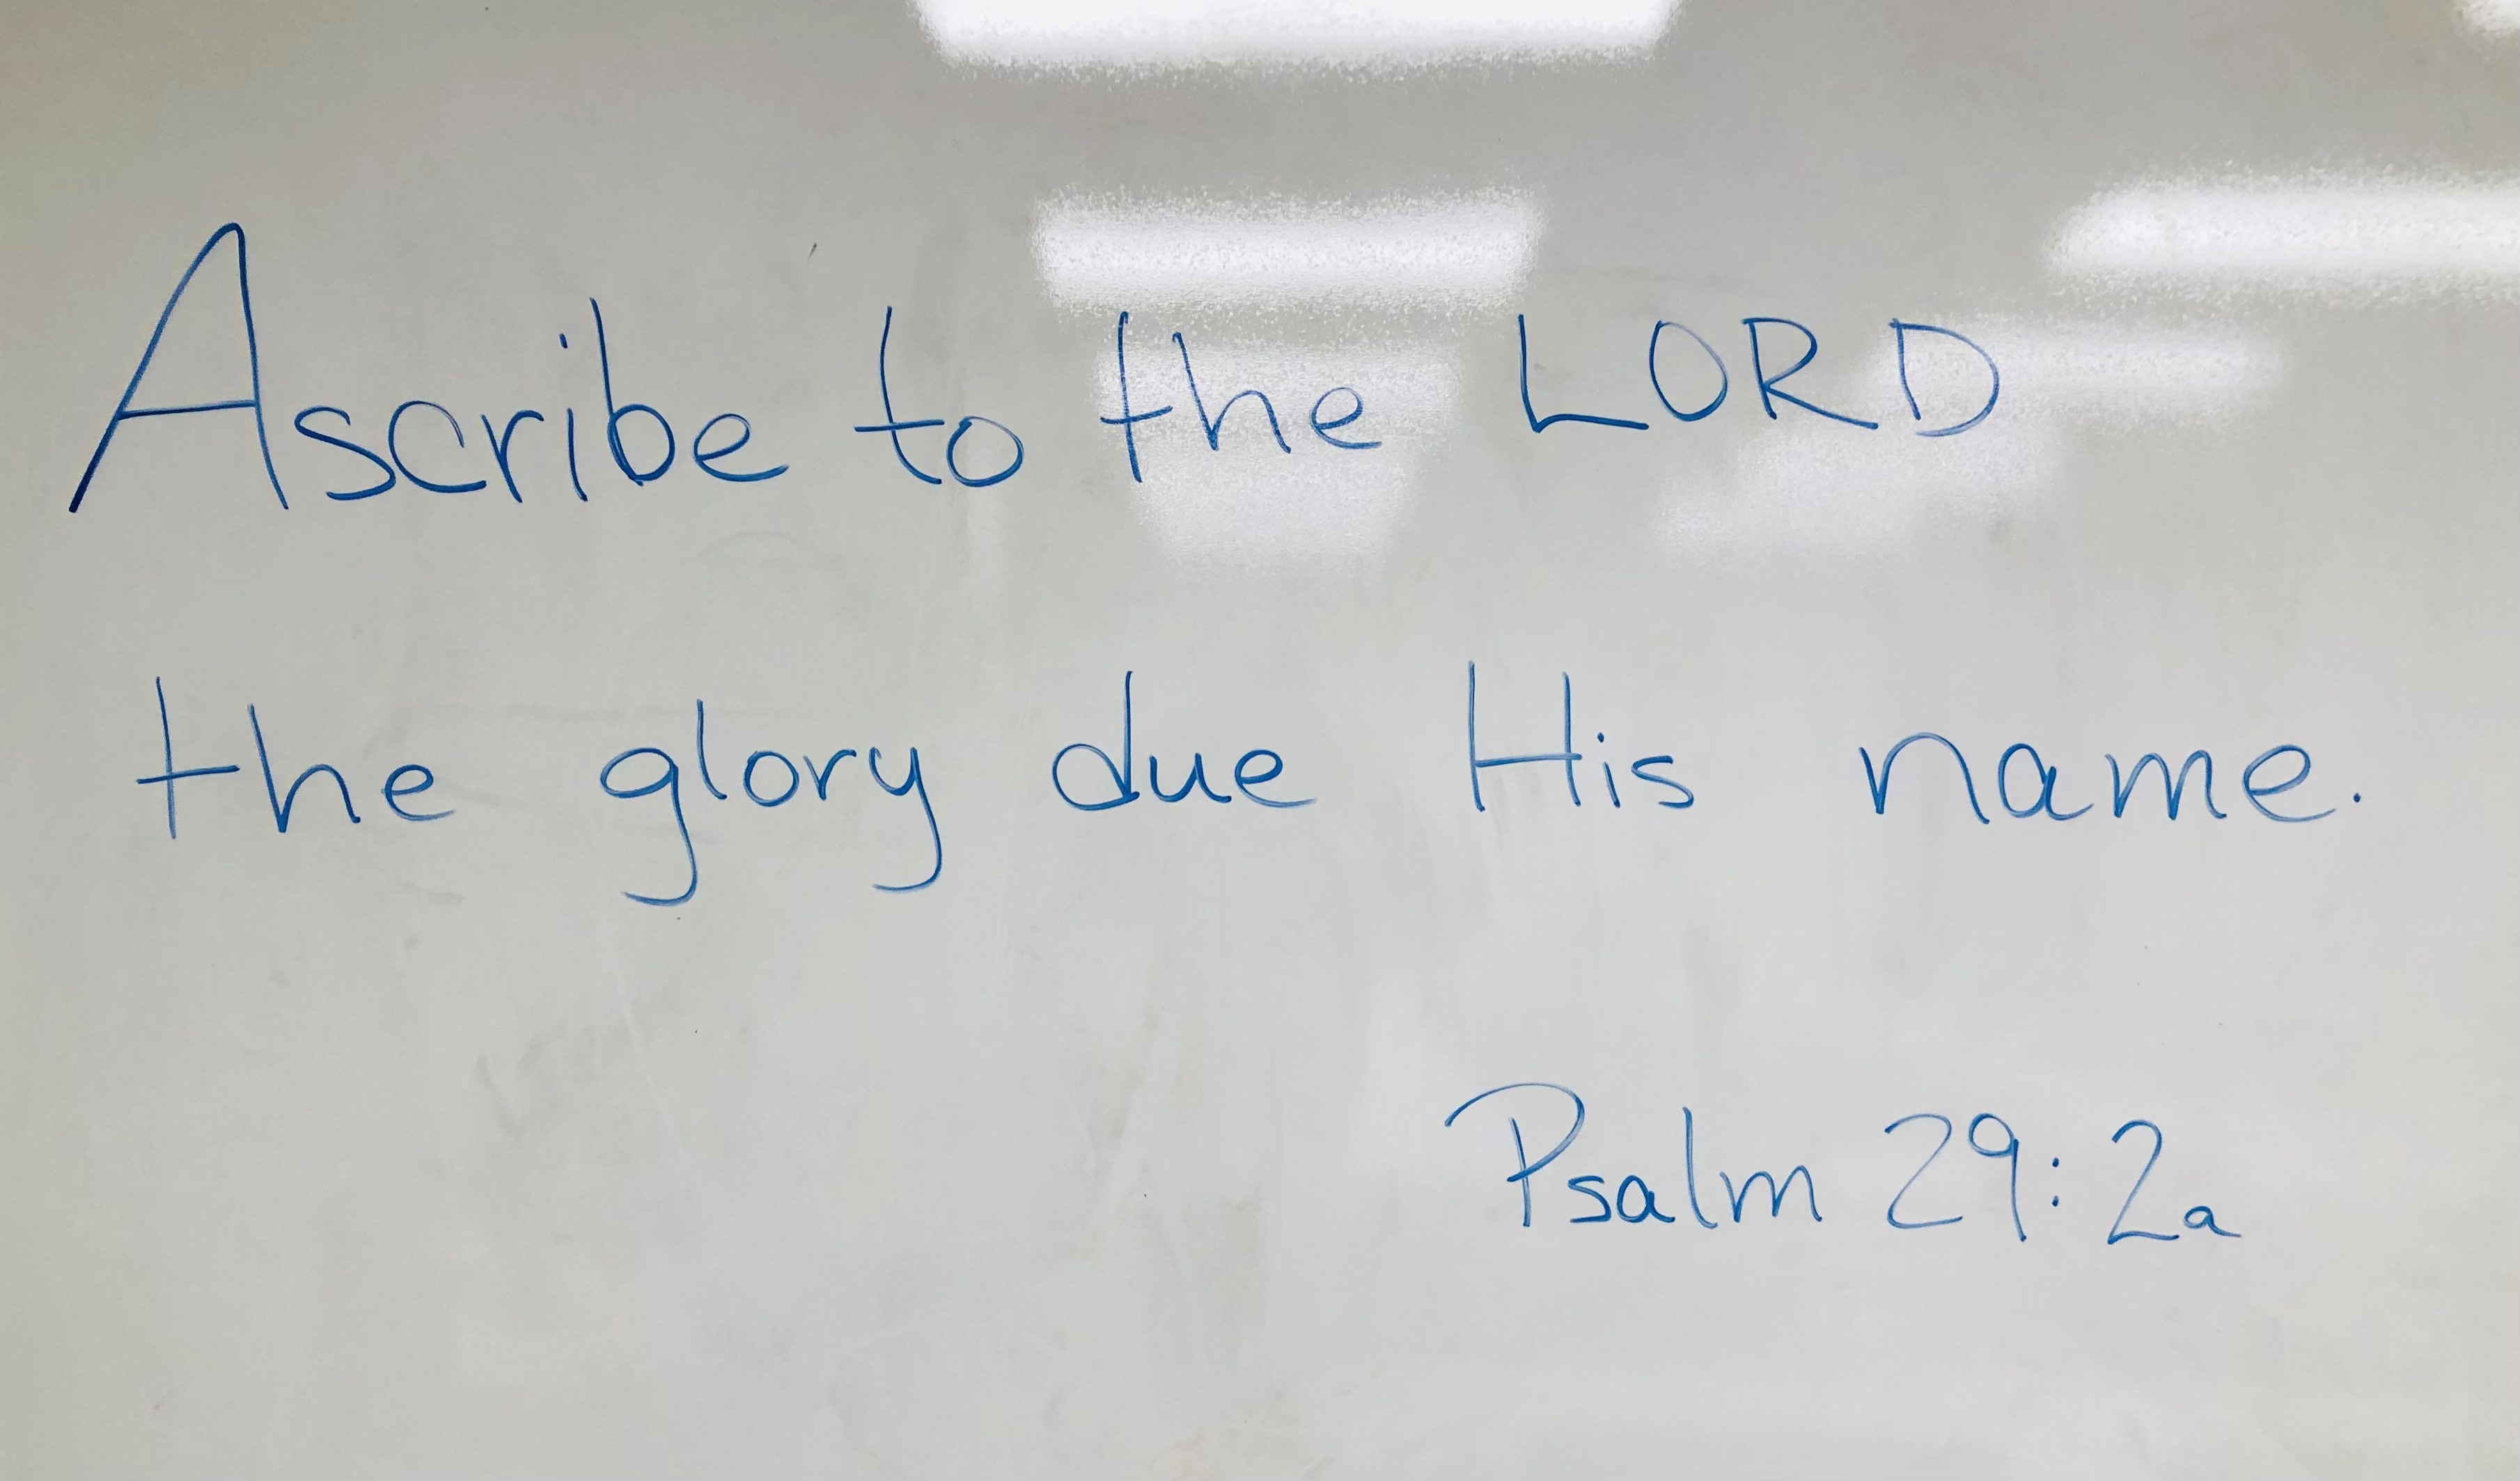 Ascribe to the LORD
the glory due His name.
Psalm 29:2a